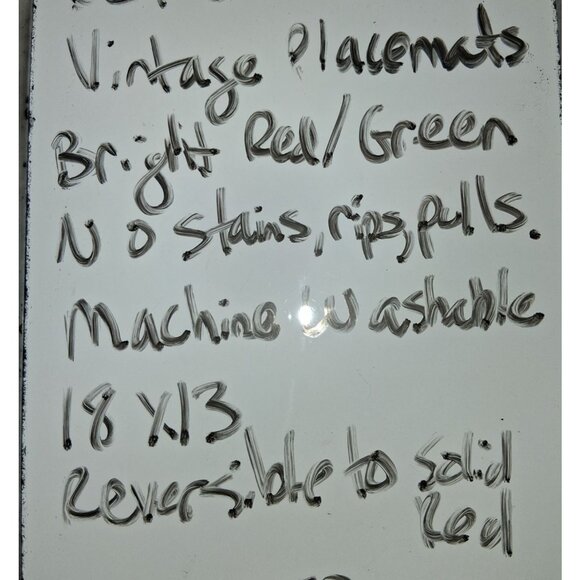 Vintage Placemats
Bright Red/Green
No stains, rips, pulls.
Machine Washable
18 X13
Reversible to Solid
Red